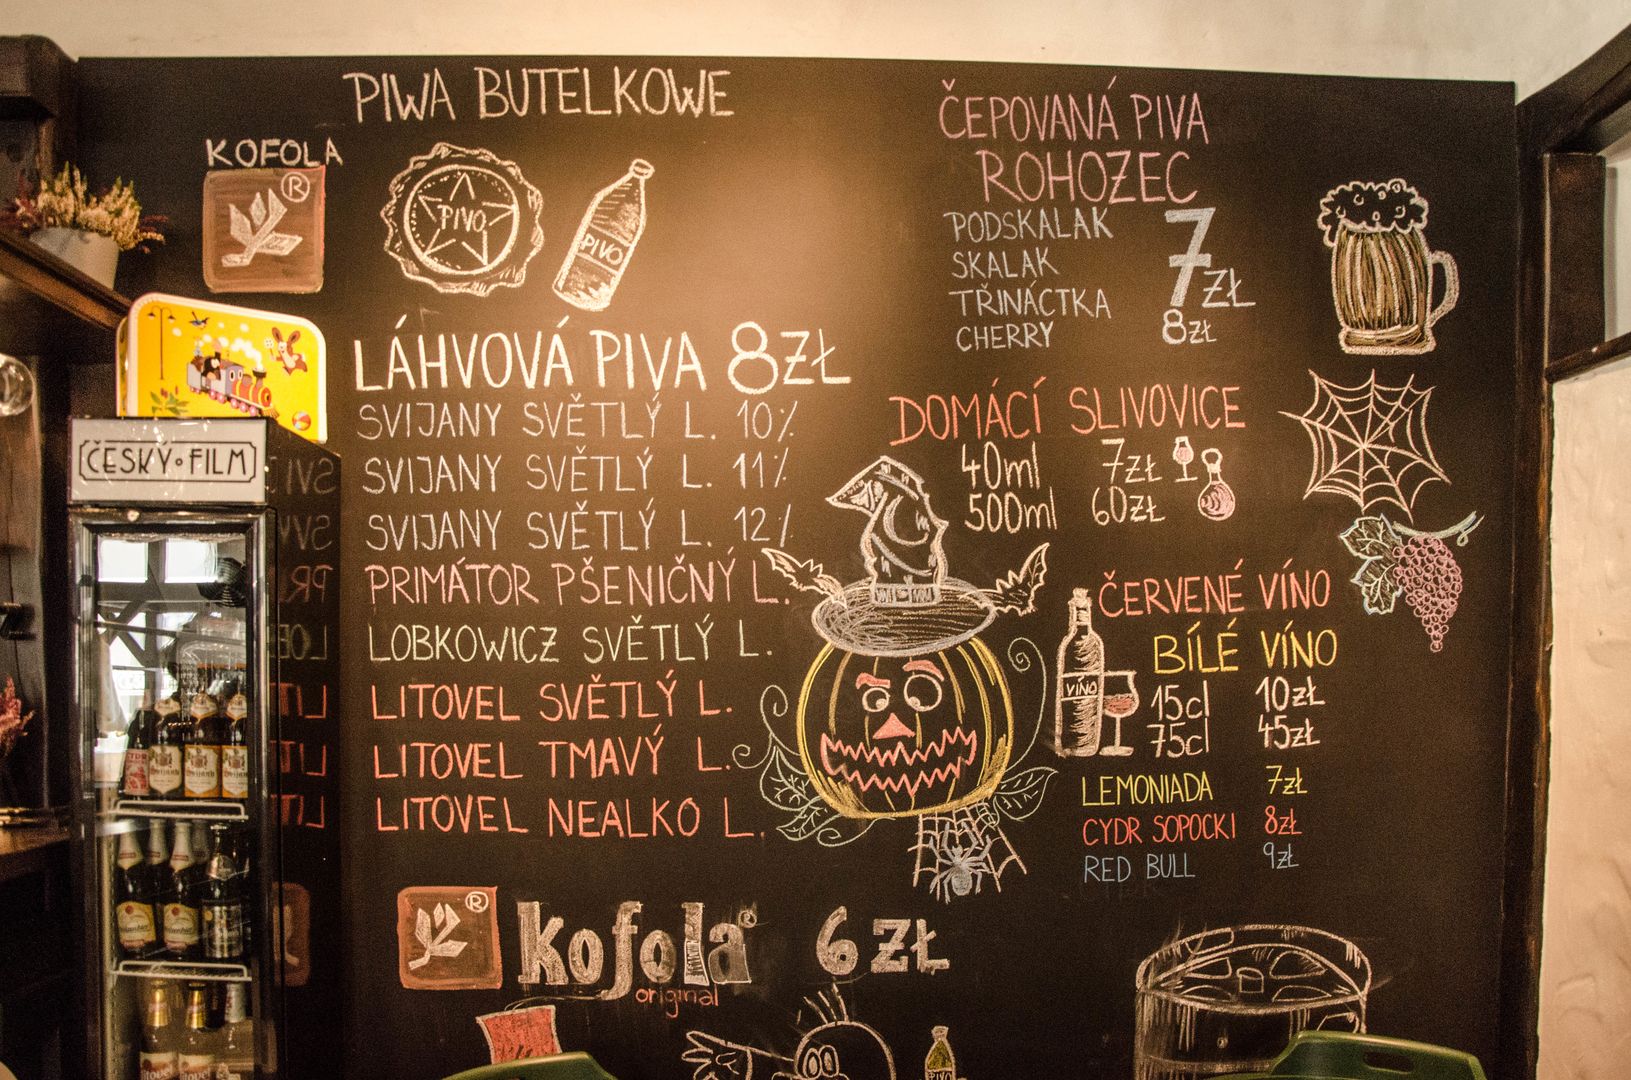 PIWA BUTELKOWE
KOFOLA
®
PIVO
PIVO
LÁHVOVÁ PIVA 8ZŁ
SVIJANY SVĚTLÝ L. 10%
SVIJANY SVĚTLÝ L. 11%
SVIJANY SVĚTLÝ L. 12%
PRIMÁTOR PŠENIČNÝ L.
LOBKOWICZ SVĚTLÝ L.
LITOVEL SVĚTLÝ L.
LITOVEL TMAVÝ L.
LITOVEL NEALKO L.
®
kofola® 6 ZŁ
original
ČEPOVANÁ PIVA
ROHOZEC
PODSKALAK 7ZŁ
SKALAK
TŘINÁCTKA
CHERRY 8ZŁ
DOMÁCÍ SLIVOVICE
40ml 7ZŁ
500ml 60ZŁ
ČERVENÉ VÍNO
BÍLÉ VÍNO
VÍNO
15cl 10ZŁ
75cl 45ZŁ
LEMONIADA 7ZŁ
CYDR SOPOCKI 8ZŁ
RED BULL 9ZŁ
PIVO
ČESKÝ FILM